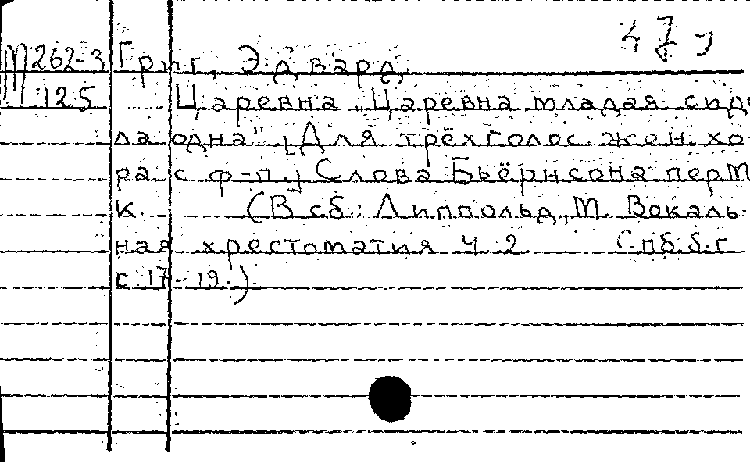 М262-3 Григ, Эдвард.
125 Царевна „Царевна младая сиде
ла одна". [Для трёхголос. жен. хо
ра с ф-п.] Слова Бьёрнсона пер М
К. (В сб: Липпольд, М. Вокаль-
ная хрестоматия ч 2 С.пб б.г
с 17-19.)